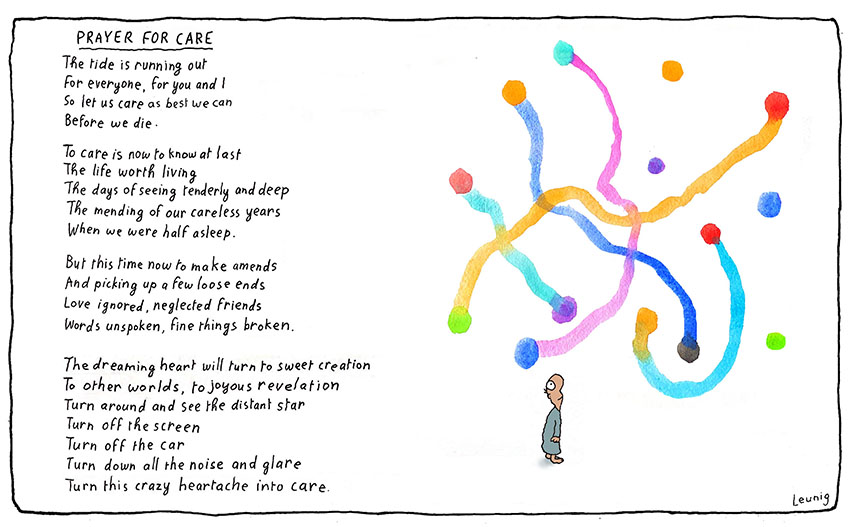 PRAYER FOR CARE
The tide is running out
For everyone, for you and I
So let us care as best we can
Before we die.
To care is now to know at last
The life worth living
The days of seeing tenderly and deep
The mending of our careless years
When we were half asleep.
But this time now to make amends
And picking up a few loose ends
Love ignored, neglected friends
Words unspoken, fine things broken.
The dreaming heart will turn to sweet creation
To other worlds, to joyous revelation
Turn around and see the distant star
Turn off the screen
Turn off the car
Turn down all the noise and glare
Turn this crazy heartache into care.
Leunig